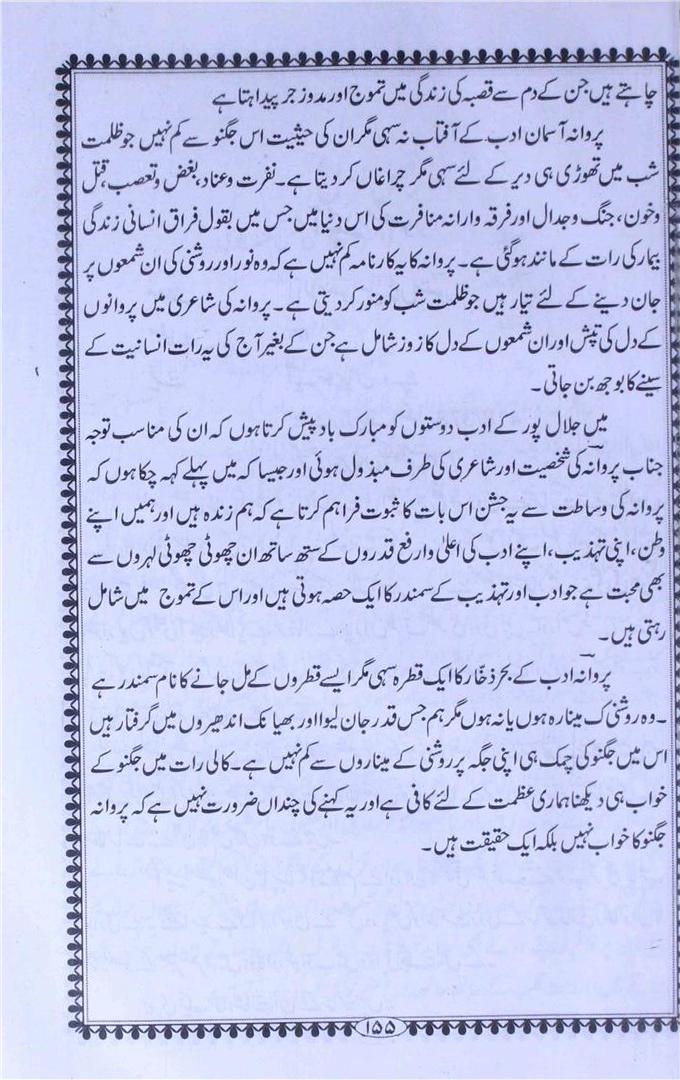 چاہتے ہیں جن کے دم سے قصبہ کی زندگی میں تموج اور مدوزجر پیدا ہتا ہے
پروانہ آسمان ادب کے آفتاب نہ سہی مگر ان کی حیثیت اس جگنو سے کم نہیں جو ظلمت
شب میں تھوڑی ہی دیر کے لئے سہی مگر چراغاں کر دیتا ہے۔ نفرت وعناد، بغض وتعصب، قتل
وخون، جنگ وجدال اور فرقہ وارانہ منافرت کی اس دنیا میں جس میں بقول فراق انسانی زندگی
بیمار کی رات کے مانند ہوگئی ہے۔ پروانہ کا یہ کارنامہ کم نہیں ہے کہ وہ نور اور روشنی کی ان شمعوں پر
جان دینے کے لئے تیار ہیں جو ظلمت شب کو منور کر دیتی ہے۔ پروانہ کی شاعری میں پروانوں
کے دل کی تپش اور ان شمعوں کے دل کا زوز شامل ہے جن کے بغیر آج کی یہ رات انسانیت کے
سینے کا بوجھ بن جاتی۔
میں جلال پور کے ادب دوستوں کو مبارک باد پیش کرتا ہوں کہ ان کی مناسب توجہ
جناب پروانہؔ کی شخصیت اور شاعری کی طرف مبذول ہوئی اور جیسا کہ میں پہلے کہہ چکا ہوں کہ
پروانہ کی وساطت سے یہ جشن اس بات کا ثبوت فراہم کرتا ہے کہ ہم زندہ ہیں اور ہمیں اپنے
وطن، اپنی تہذیب، اپنے ادب کی اعلیٰ وارفع قدروں کے ستھ ساتھ ان چھوٹی چھوٹی لہروں سے
بھی محبت ہے جو ادب اور تہذیب کے سمندر کا ایک حصہ ہوتی ہیں اور اس کے تموج میں شامل
رہتی ہیں۔
پروانہؔ ادب کے بحر ذخّار کا ایک قطرہ سہی مگر ایسے قطروں کے مل جانے کا نام سمندر ہے
۔ وہ روشنی ک مینارہ ہوں یا نہ ہوں مگر ہم جس قدر جان لیوا اور بھیانک اندھیروں میں گرفتار ہیں
اس میں جگنو کی چمک ہی اپنی جگہ پر روشنی کے میناروں سے کم نہیں ہے۔ کالی رات میں جگنو کے
خواب ہی دیکھنا ہماری عظمت کے لئے کافی ہے اور یہ کہنے کی چنداں ضرورت نہیں ہے کہ پروانہ
جگنو کا خواب نہیں بلکہ ایک حقیقت ہیں۔
۱۵۵